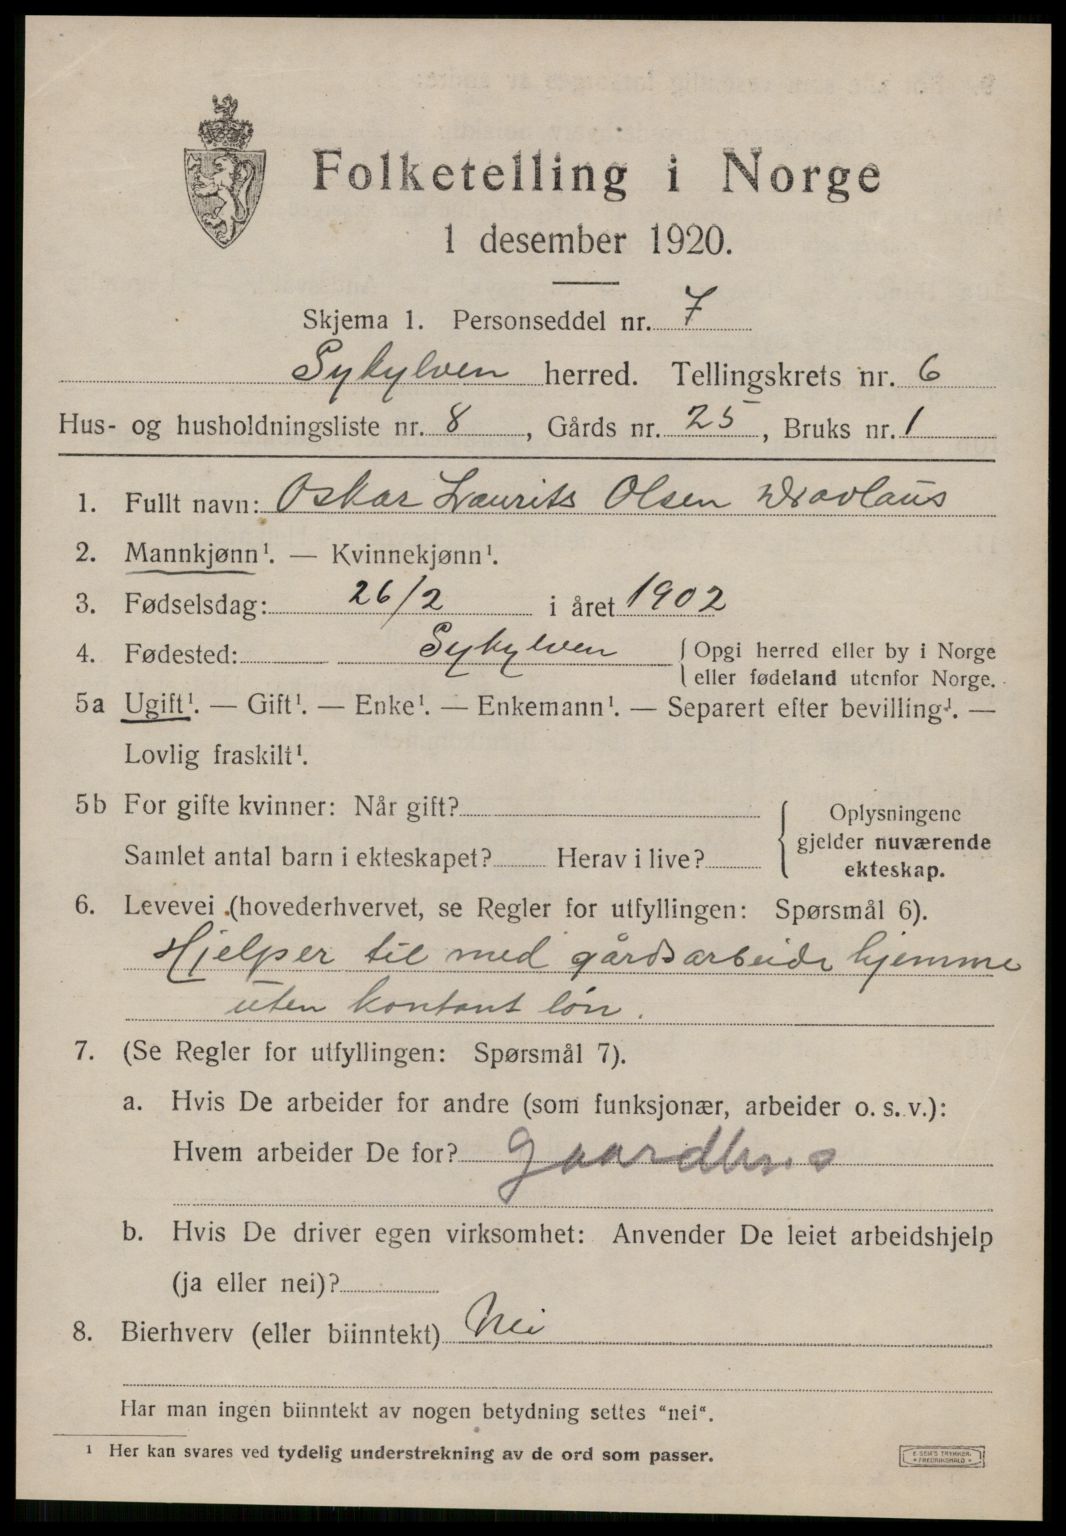 Folketelling i Norge
1 desember 1920.
Skjema 1. Personseddel nr. 7
Sykylven herred. Tellingskrets nr. 6
Hus- og husholdningsliste nr. 8, Gårds nr. 25, Bruks nr. 1
1. Fullt navn: Oskar Laurits Olsen Dravlaus
2. Mannkjønn¹. — Kvinnekjønn¹.
3. Fødselsdag: 26/2 i året 1902
4. Fødested: Sykylven { Opgi herred eller by i Norge
eller fødeland utenfor Norge.
5a Ugift¹. — Gift¹. — Enke¹. — Enkemann¹. — Separert efter bevilling¹. —
Lovlig fraskilt¹.
5b For gifte kvinner: Når gift?
Samlet antal barn i ekteskapet? Herav i live?
{ Oplysningene
gjelder nuværende
ekteskap.
6. Levevei (hovederhvervet, se Regler for utfyllingen: Spørsmål 6).
Hjelper til med gårdsarbeide hjemme
uten kontant løn.
7. (Se Regler for utfyllingen: Spørsmål 7).
a. Hvis De arbeider for andre (som funksjonær, arbeider o. s. v.):
Hvem arbeider De for?
b. Hvis De driver egen virksomhet: Anvender De leiet arbeidshjelp
(ja eller nei)?
8. Bierhverv (eller biinntekt) Nei
Har man ingen biinntekt av nogen betydning settes “nei“.
¹ Her kan svares ved tydelig understrekning av de ord som passer.
E SEM'S TRYKKERI
FREDRIKSHALD